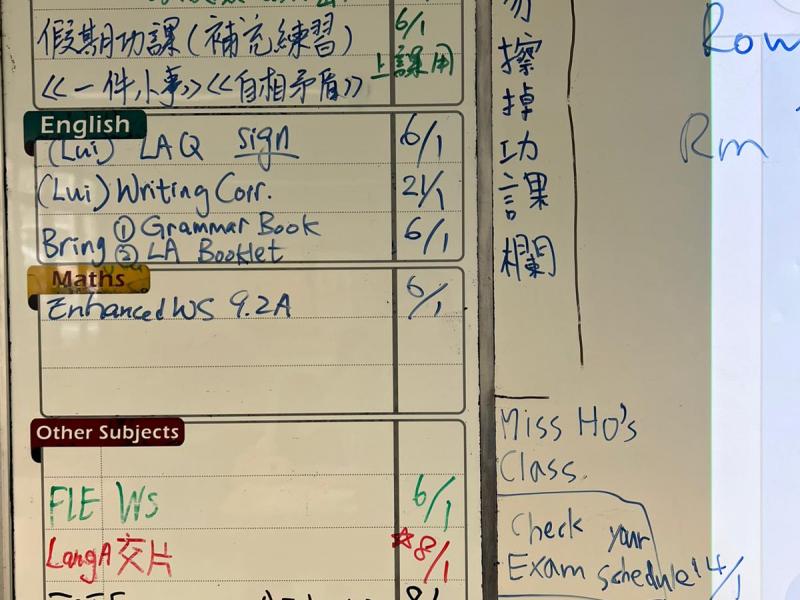 假期功課(補充練習) 6/1
《一件小事》《自相矛盾》 上課用
English
(Lui) LAQ sign 6/1
(Lui) Writing Corr. 21/1
Bring ① Grammar Book 6/1
② LA Booklet
Maths
Enhanced WS 9.2A 6/1
Other Subjects
FLE WS 6/1
LangA 交片 *8/1
擦
掉
功
課
欄
Row
Rm
Miss Ho's
Class
Check your
Exam schedule 14/1